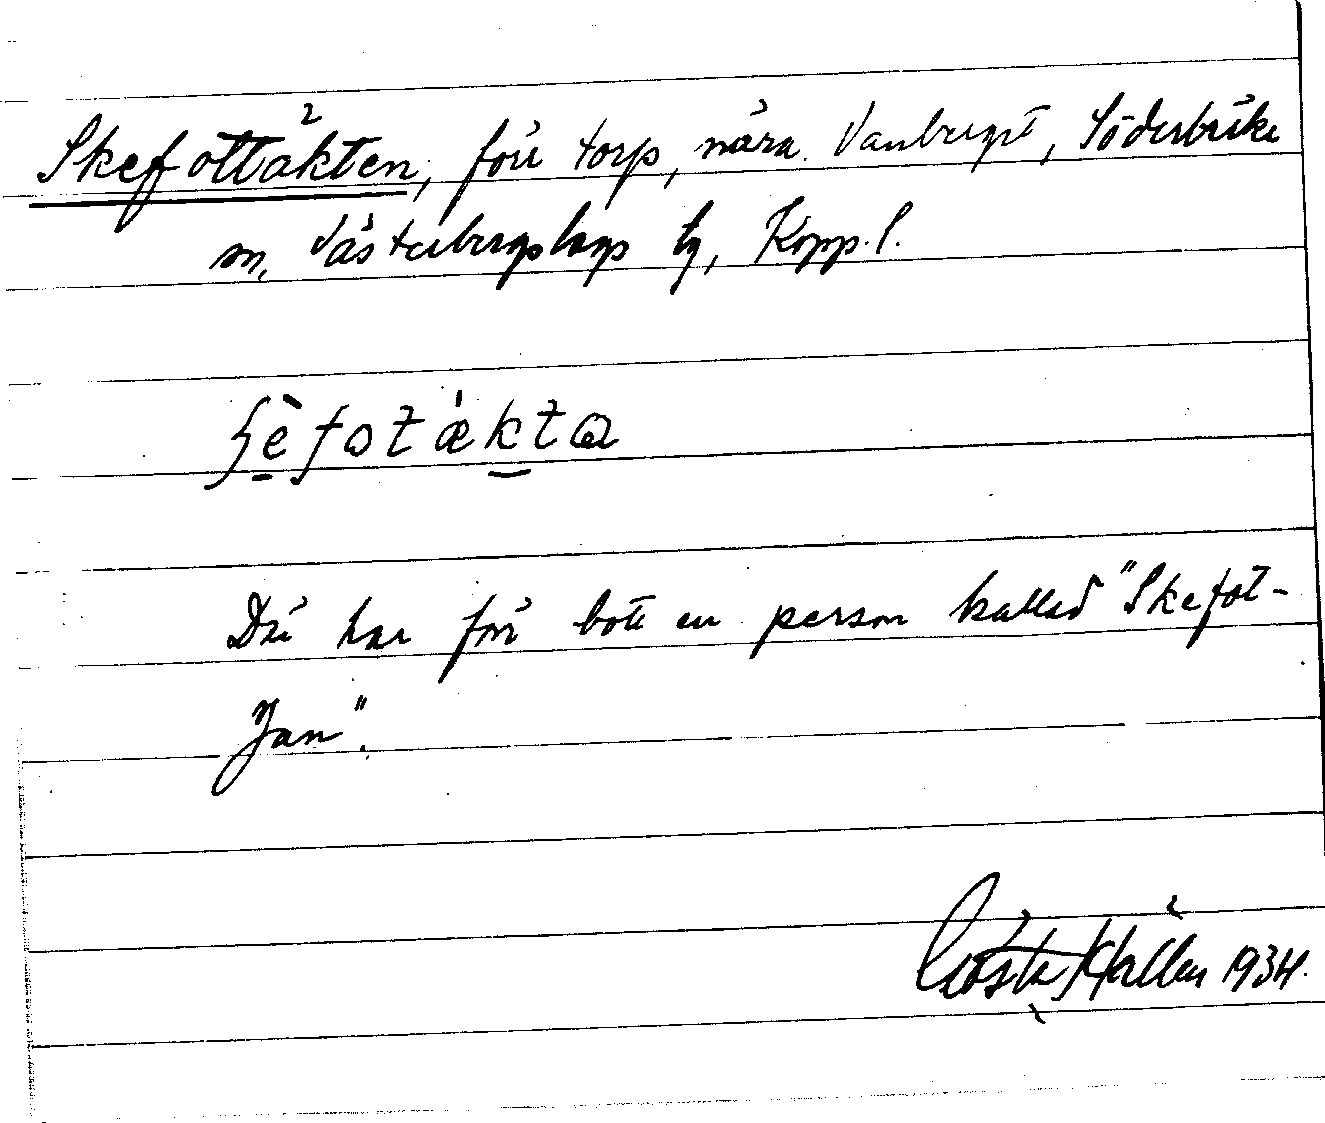 Skefottäkten, förr torp, nära Vanberget, Söderbärke
sn, Västerbergslags tg, Kopp. l.
ʃèfotækta
Där har förr bott en person kallad "Skefot-
Jan".
Gösta Hallén 1934.